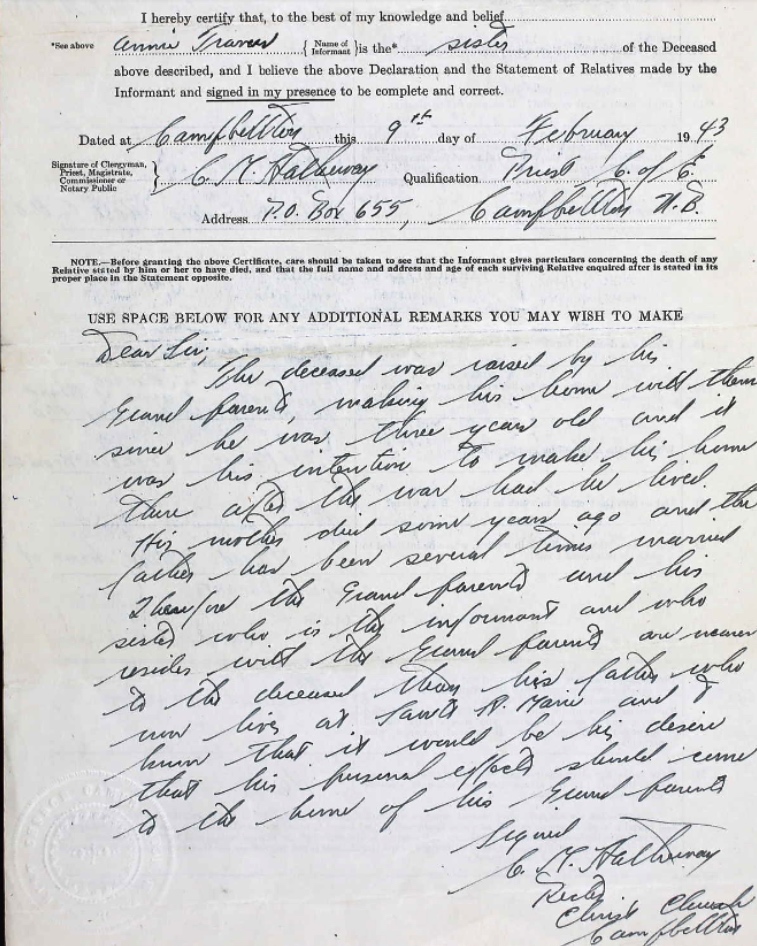 I hereby certify that, to the best of my knowledge and belief
*See above Annie Travers { Name of Informant } is the* sister of the Deceased
above described, and I believe the above Declaration and the Statement of Relatives made by the
Informant and signed in my presence to be complete and correct.
Dated at Campbellton this 9th day of February 1943
Signature of Clergyman, Priest, Magistrate, Commissioner or Notary Public } C. M. Hatheway Qualification Priest C. of E.
Address P.O. Box 655, Campbellton N.B.
NOTE.—Before granting the above Certificate, care should be taken to see that the Informant gives particulars concerning the death of any
Relative stated by him or her to have died, and that the full name and address and age of each surviving Relative enquired after is stated in its
proper place in the Statement opposite.
USE SPACE BELOW FOR ANY ADDITIONAL REMARKS YOU MAY WISH TO MAKE
Dear Sir;
The deceased was raised by his
Grand parents, making his home with them
since he was three years old and it
was his intention to make his home
there after the war had he lived.
His mother died some years ago and the
father has been several times married
Therefore the Grand parents and his
sister who is the informant and who
resides with the Grand parents are nearer
to the deceased than his father who
now lives at Sault St. Marie and I
know that it would be his desire
that his personal effects should come
to the home of his Grand parents
Signed
C. M. Hatheway
Rector
Christ Church
Campbellton